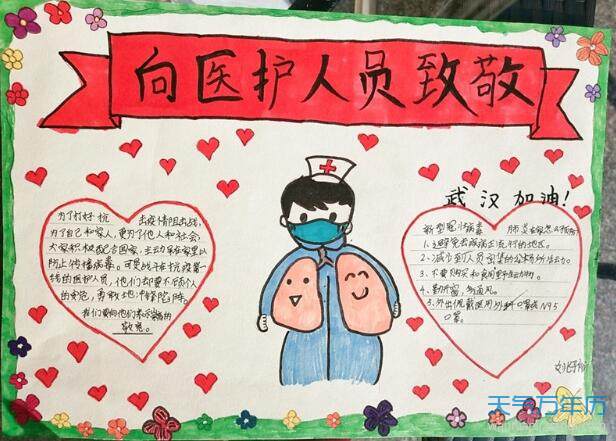 向医护人员致敬
武汉加油!
为了打好抗击疫情阻击战,
为了自己和家人,更为了他人和社会,
大家积极配合国家,主动呆在家里以
防止传播病毒。可是战斗在抗疫第一
线的医护人员,他们却要不顾个人
的安危,勇敢地冲锋陷阵。
我们要向他们表示
敬意。
新型冠状病毒肺炎
1、避免去疾病正在流行的地区。
2、减少到人员密集的公共场所活动
3、不要购买和食用野生动物。
4、勤开窗,多通风。
5、外出佩戴医用外科口罩或N95
口罩。
天气万年历